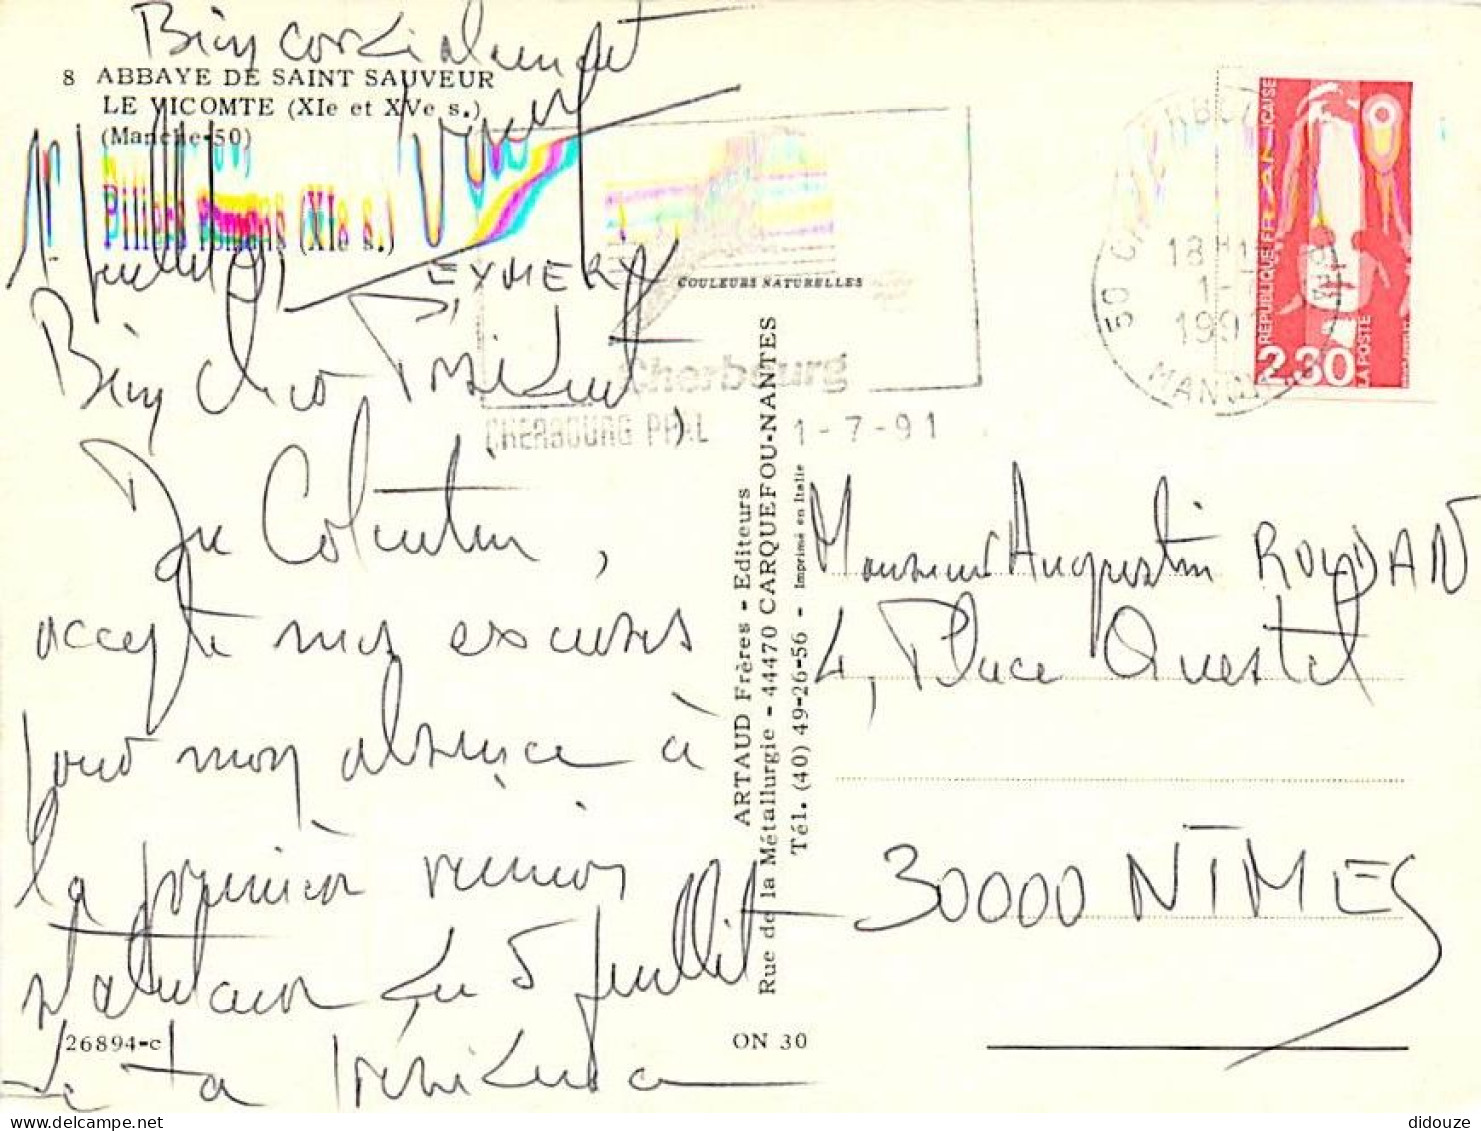 Bien cordialement
8 ABBAYE DE SAINT SAUVEUR
LE VICOMTE (XIe et XVe s.)
(Manche-50)
Piliers romans (XIe s.)
1er juillet 91
EYMERY
Bien cher Président,
Du Cotentin,
accepte mes excuses
pour mon absence à
la première réunion
statutaire du 5 juillet
de ta présidence
26894-c
COULEURS NATURELLES
Cherbourg
CHERBOURG PPAL 1-7-91
ARTAUD Frères - Editeurs
Rue de la Métallurgie - 44470 CARQUEFOU-NANTES
Tél. (40) 49-26-56 - Imprimé en Italie
ON 30
50 CHERBOURG
18 H
1-
199
MANCHE
REPUBLIQUE FRANÇAISE
2,30
LA POSTE
Monsieur Augustin ROUDAN
4, Place Questel
30000 NÎMES
didouze